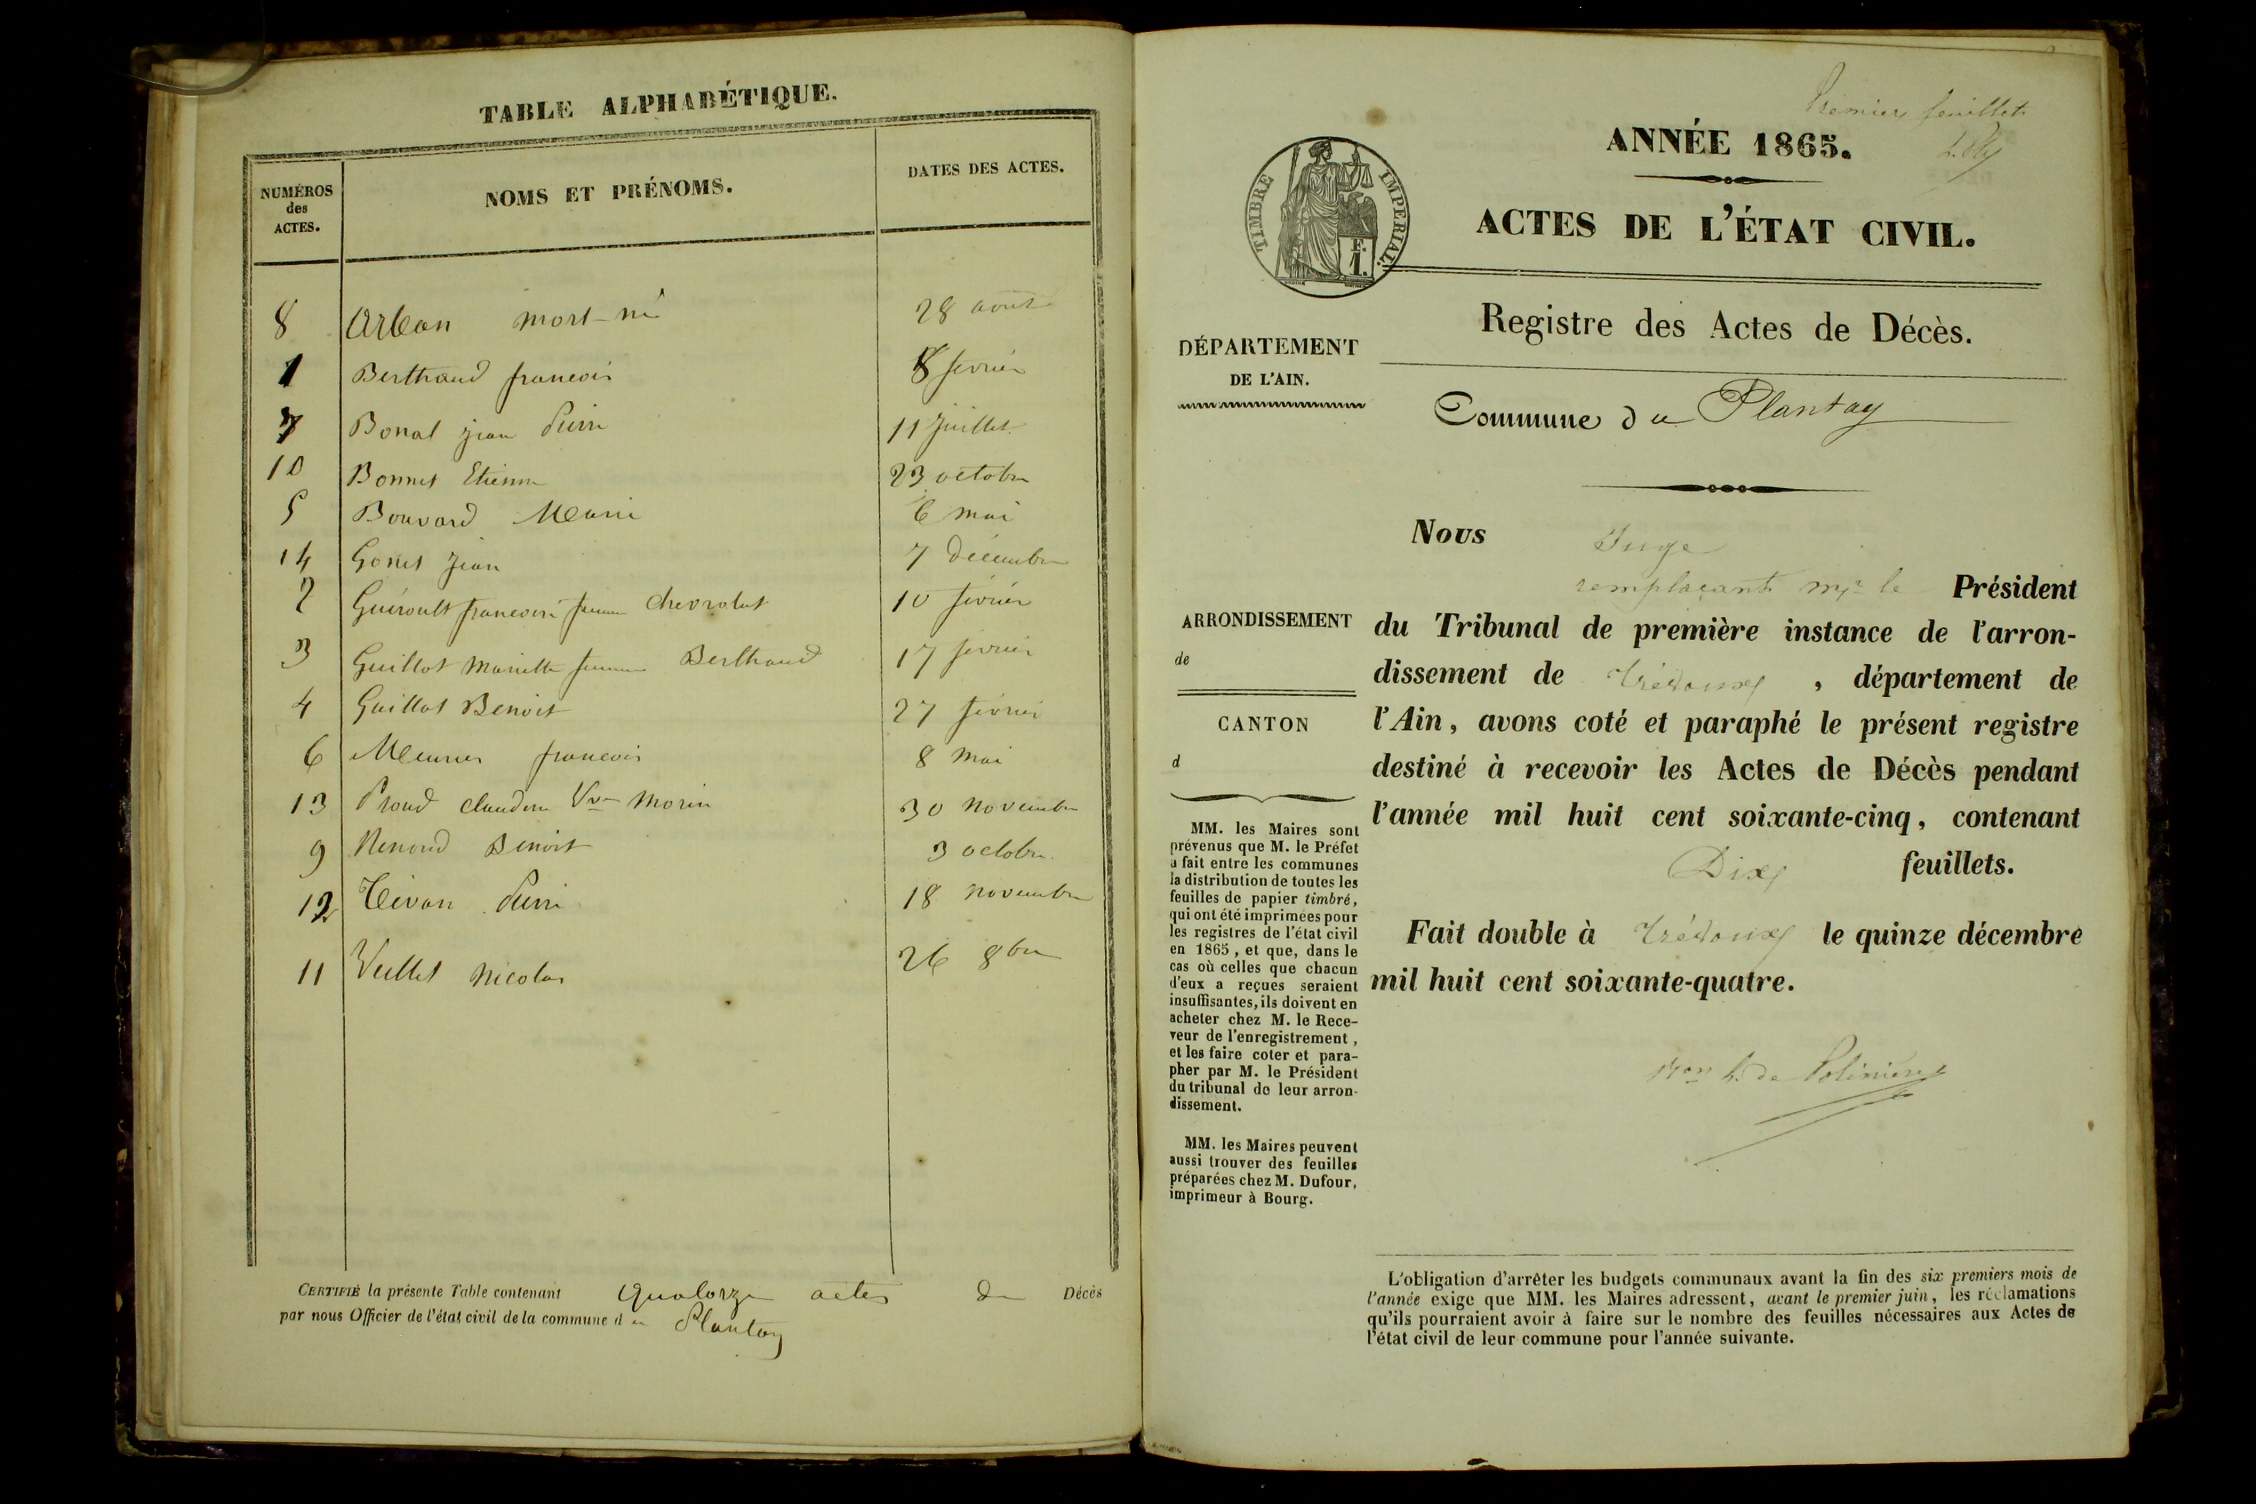 TABLE ALPHABÉTIQUE.
NUMÉROS des ACTES. NOMS ET PRÉNOMS. DATES DES ACTES.
8 Arban mort-né 28 août
1 Berthaud francois 8 fevrier
7 Bonat jean Pierre 11 juillet
10 Bonnet Etienne 23 octobre
5 Bouvard Marie 6 mai
14 Gonet jean 7 décembre
2 Guéroult francoise femme Chevrolat 10 février
3 Guillot Mariette femme Berthaud 17 fevrier
4 Guillot Benoit 27 février
6 Meunier francois 8 mai
13 Proud claudine Vve Morin 30 novembre
9 Renoud Benoit 3 octobre
12 Pierre 18 novembre
11 Veillet Nicolas 26 8bre
CERTIFIÉ la présente Table contenant Quatorze actes de Décès
par nous Officier de l'état civil de la commune du Plantay
Premier feuillet
ANNÉE 1865.
TIMBRE IMPERIAL
F. 1.
ACTES DE L'ÉTAT CIVIL.
Registre des Actes de Décès.
DÉPARTEMENT
DE L'AIN.
Commune du Plantay
ARRONDISSEMENT
de
CANTON
d
MM. les Maires sont
prévenus que M. le Préfet
a fait entre les communes
la distribution de toutes les
feuilles de papier timbré,
qui ont été imprimées pour
les registres de l'état civil
en 1865, et que, dans le
cas où celles que chacun
d'eux a reçues seraient
insuffisantes, ils doivent en
acheter chez M. le Rece-
veur de l'enregistrement,
et les faire coter et para-
pher par M. le Président
du tribunal de leur arron-
dissement.
MM. les Maires peuvent
aussi trouver des feuilles
préparées chez M. Dufour,
imprimeur à Bourg.
Nous Juge
remplaçant Mr le Président
du Tribunal de première instance de l'arron-
dissement de Trévoux, département de
l'Ain, avons coté et paraphé le présent registre
destiné à recevoir les Actes de Décès pendant
l'année mil huit cent soixante-cinq, contenant
Dix feuillets.
Fait double à Trévoux le quinze décembre
mil huit cent soixante-quatre.
de Polinière
L'obligation d'arrêter les budgets communaux avant la fin des six premiers mois de
l'année exige que MM. les Maires adressent, avant le premier juin, les réclamations
qu'ils pourraient avoir à faire sur le nombre des feuilles nécessaires aux Actes de
l'état civil de leur commune pour l'année suivante.